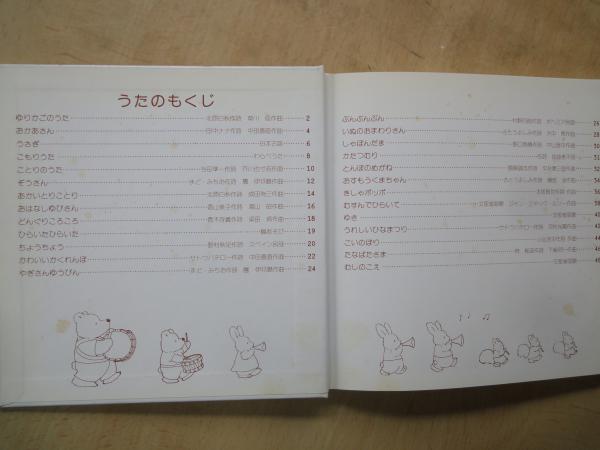 うたのもくじ
ゆりかごのうた 北原白秋作詞 草川 信作曲 2
おかあさん 田中ナナ作詞 中田喜直作曲 4
うさぎ 日本古謡 6
こもりうた わらべうた 8
ことりのうた 与田準一作詞 芥川也寸志作曲 10
ぞうさん まど・みちお作詞 團 伊玖磨作曲 12
あかいとりことり 北原白秋作詞 成田為三作曲 14
おはなしゆびさん 香山美子作詞 湯山 昭作曲 16
どんぐりころころ 青木存義作詞 梁田 貞作曲 18
ひらいたひらいた 19
ちょうちょう 野村秋足作詞 スペイン民謡 20
かわいいかくれんぼ サトウハチロー作詞 中田喜直作曲 22
やぎさんゆうびん まど・みちお作詞 團 伊玖磨作曲 24
ぶんぶんぶん 村野四郎作詞 ボヘミア民謡 26
いぬのおまわりさん さとうよしみ作詞 大中 恩作曲 28
しゃぼんだま 野口雨情作詞 中山晋平作曲 30
かたつむり 31
とんぼのめがね 32
おすもうくまちゃん 34
きしゃポッポ
むすんでひらいて
ゆき
うれしいひなまつり サトウハチロー作詞
こいのぼり 44
たなばたさま
むしのこえ